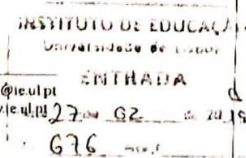 INSTITUTO DE EDUCAÇÃ
Universidade de Lisbo
ENTRADA
@ie.ul.pt
ie.ul.pt 27 de 02 de 20
676